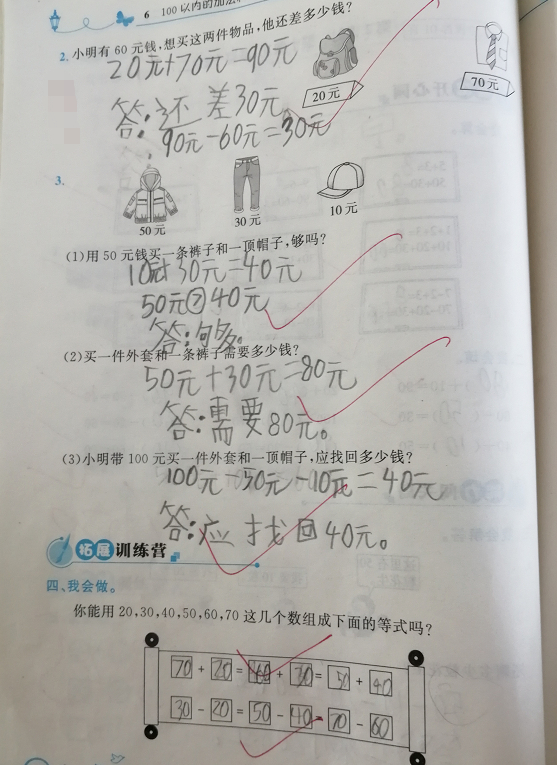 6 100以内的加法
2. 小明有60元钱,想买这两件物品,他还差多少钱?
20元+70元=90元
20元
70元
答:还差30元
90元-60元=30元
3.
50元
30元
10元
(1)用50元钱买一条裤子和一顶帽子,够吗?
10元+30元=40元
50元>40元
答:够。
(2)买一件外套和一条裤子需要多少钱?
50元+30元=80元
答:需要80元。
(3)小明带100元买一件外套和一顶帽子,应找回多少钱?
100元-50元-10元=40元
答:应找回40元。
拓展训练营
四、我会做。
你能用20,30,40,50,60,70这几个数组成下面的等式吗?
70+20=60+30=50+40
30-20=50-40=70-60